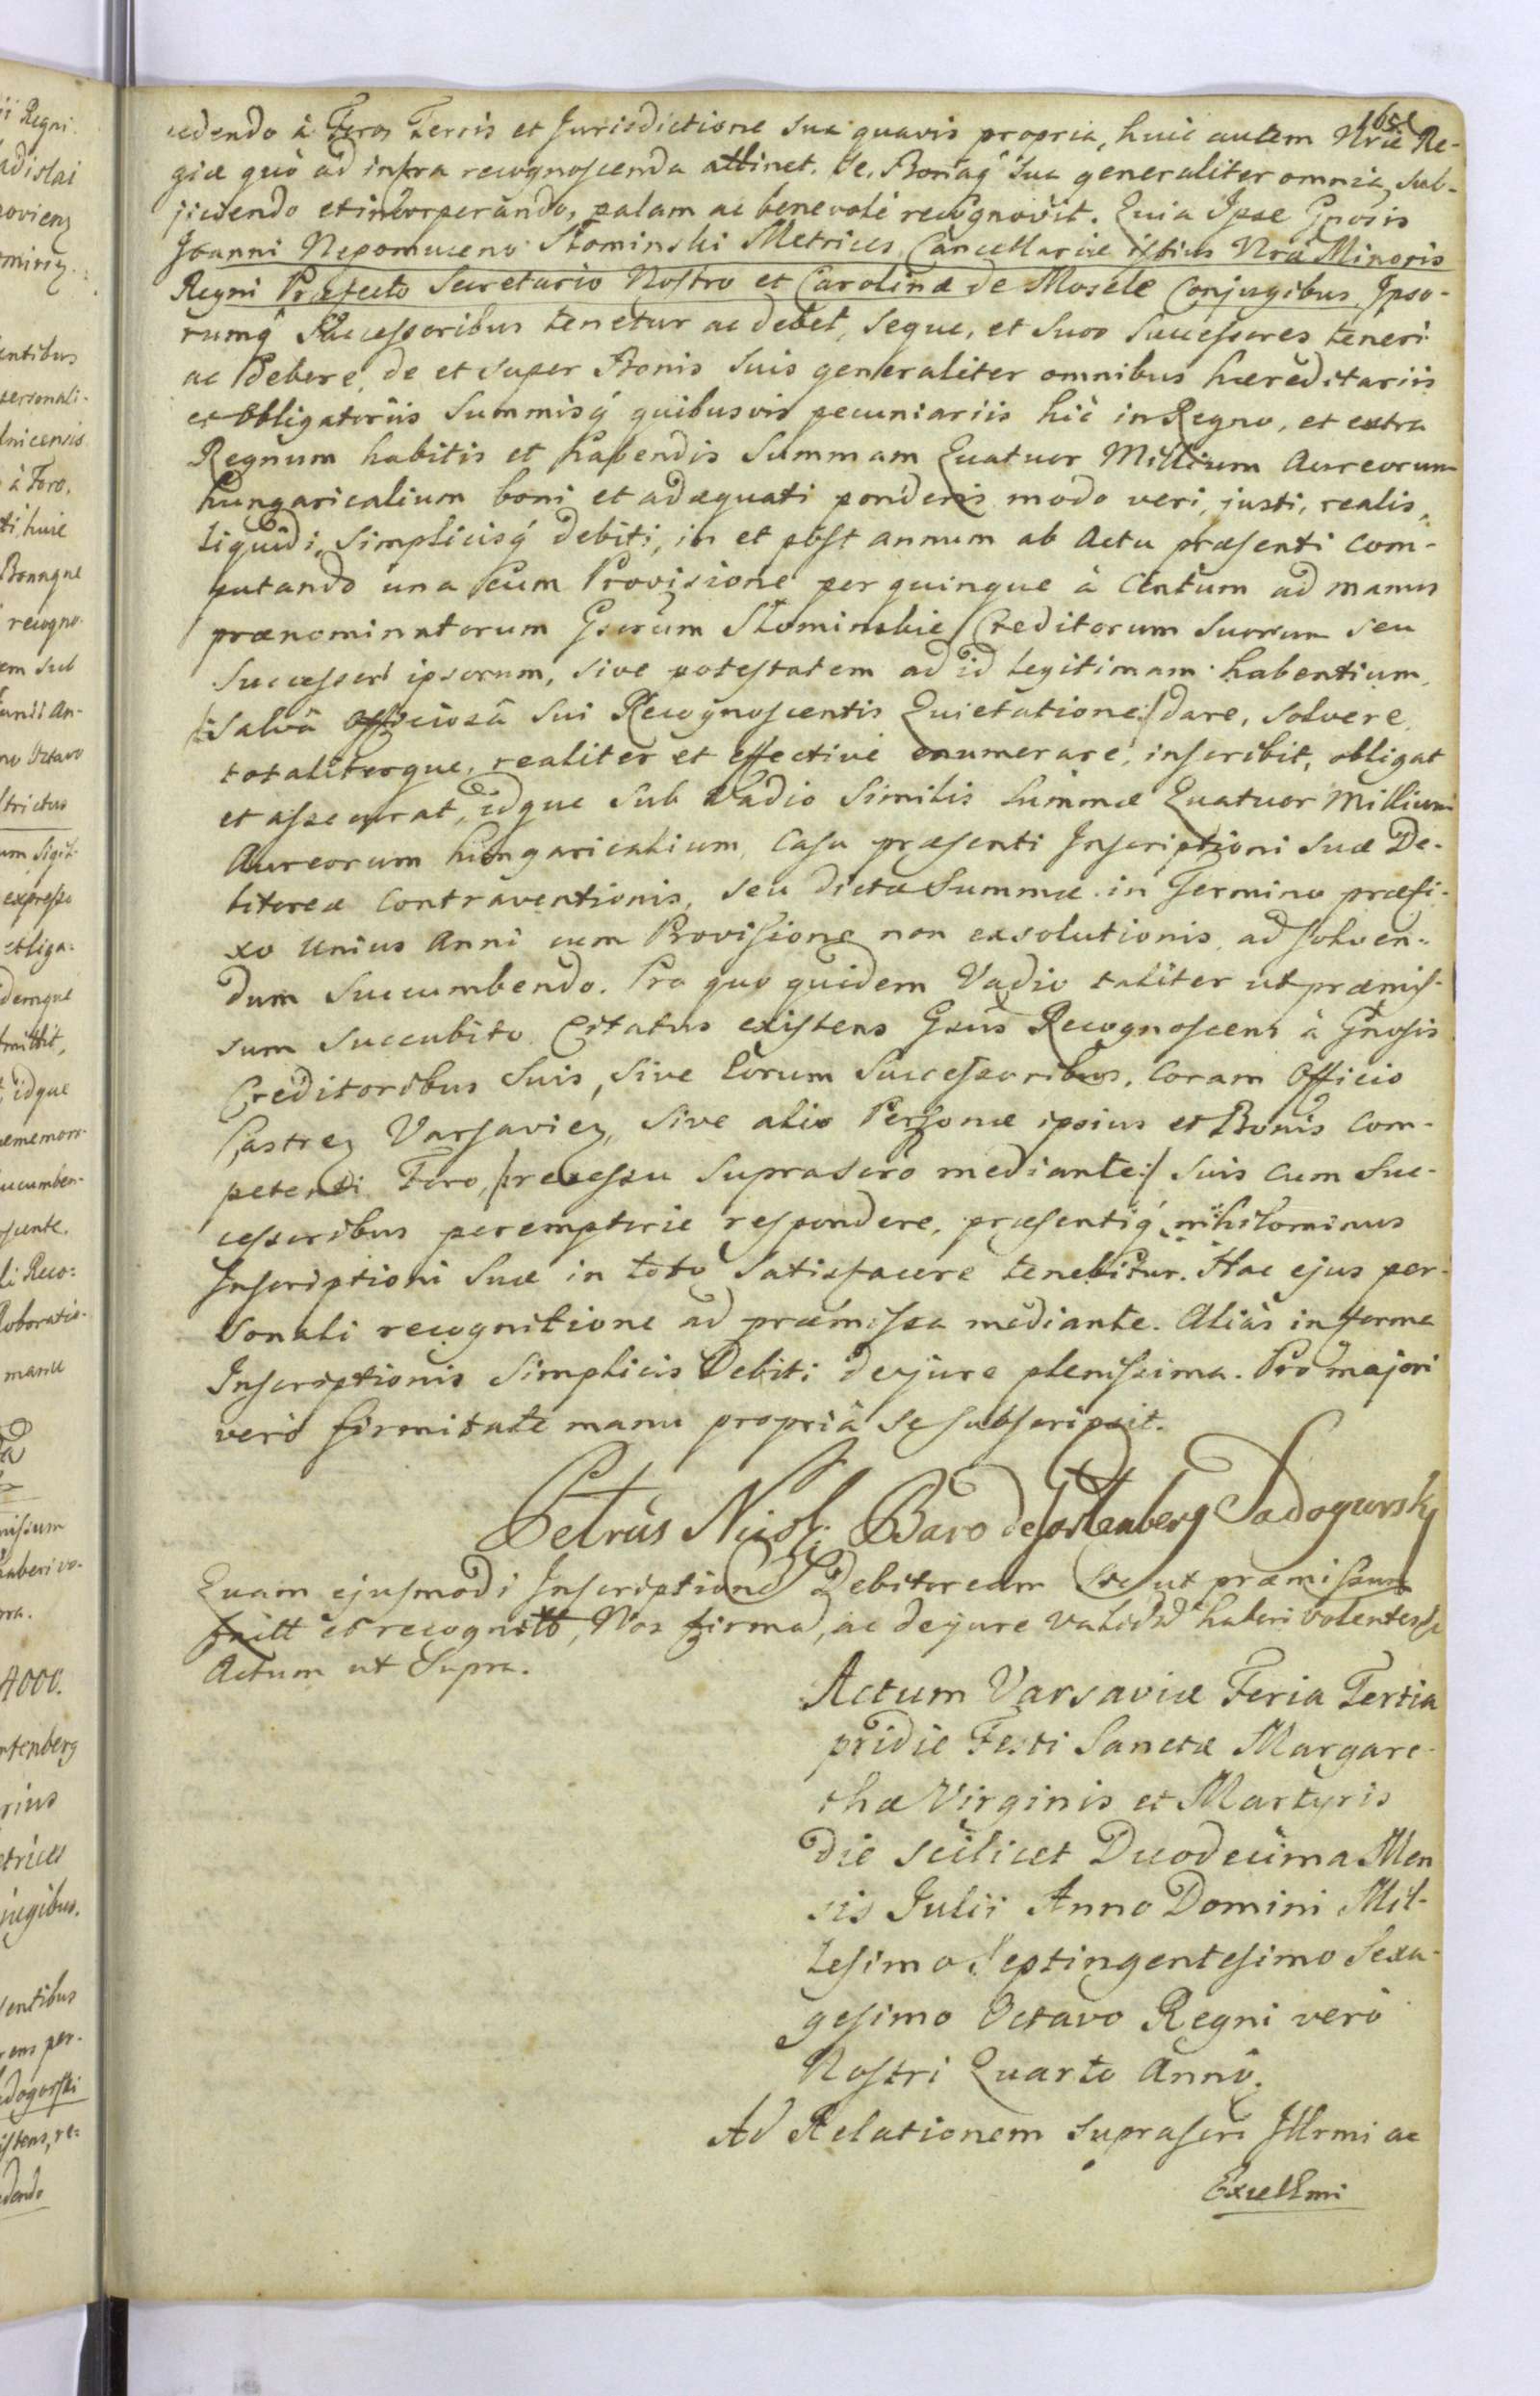 cedendo à Foro Terris et Jurisdictione sua quavis propria, huic autem Nrae Re-
giae quò ad infra recognoscenda attinet. Se, Bonaq́ sua generaliter omnia, sub-
jiciendo et incorporando, palam ac benevolè recognovit. Quia Ipse Gnosis
Joanni Nepomuceno Słominski Metrices Cancellariae istius Nrae Minoris
Regni Praefecto Secretario Nostro et Carolinae de Mosele Conjugibus Ipso-
rumq́ Successoribus tenetur ac debet, seque, et suos successores teneri
ac debere, de et super Bonis suis generaliter omnibus haereditariis
et obligatoriis Summisq́ quibusvis pecuniariis hîc in Regno, et extra
Regnum habitis et habendis Summam Quatuor Millium Aureorum
hungaricalium boni et adaequati ponderis modo veri, justi, realis,
liquidi, simplicisq́ debiti, in et post annum ab Actu praesenti com-
putando una cum Provisione per quinque à Centum ad manus
praenominatorum Gsorum Słominskie Creditorum suorum seu
Successor ipsorum, sive potestatem ad id legitimam habentium,
/:salvâ officiosâ sui Recognoscentis Quietatione:/ dare, solvere
totaliterque, realiter et effectivè enumerare, inscribit, obligat
et assecurat, idque sub Vadio similis summae Quatuor Millium
Aureorum hungaricalium, Casu praesenti Inscriptioni suae De-
bitoreae Contraventionis, seu dictae Summae in Termino praefi-
xo unius Anni cum Provisione non exsolutionis, ad solven-
dum succumbendo. Pro quo quidem Vadio taliter ut praemis-
sum succubito Citatus existens Gsus Recognoscens à Gnosis
Creditoribus suis, sive Eorum Successoribus, Coram Officio
Castren Varsavien, sive alio Personae ipsius et Bonis Com-
petenti Foro, /:recessu suprascro mediante:/ suis cum suc-
cessoribus peremptorie respondere, praesentiq́ nihilominus
Inscriptioni suae in toto satisfacere tenebitur. Hac ejus per-
sonali recognitione ad praemissa mediante. Aliàs in forma
Inscriptionis simplicis Debiti dejure plenissima. Pro majori
verò firmitate manu propriâ se subscripsit.
Petrus Nicol: Baro de Gortenberg Sadogursky
Quam ejusmodi Inscriptione Debitoream sic ut praemissum
fuitt et recognitt, Nos firmâ, ac dejure validâ haberi volentes
Actum ut Supra.
Actum Varsaviae Feria Tertia
pridie Festi Sanctae Margare-
thae Virginis et Martyris
die scilicet Duodecima Men
sis Julii Anno Domini Mil-
lesimo Septingentesimo Sexa-
gesimo Octavo Regni verò
Nostri Quarto Anno.
Ad Relationem suprascri Illrmi ac
Excellmi